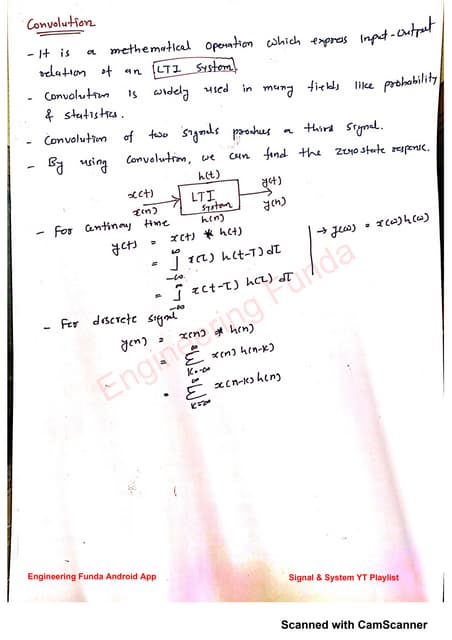 Convolution
- It is a methematical operation which express Input-Output
relation of an LTI System
- Convolution is widely used in many fields like probability
& statistics.
- Convolution of two signals produces a third signal.
- By using Convolution, we can find the zero state response.
h(t)
x(t) LTI y(t)
x(n) System y(n)
h(n)
- For continuous time
y(t) = x(t) * h(t) → y(ω) = x(ω) h(ω)
= ∫_{-∞}^{∞} x(τ) h(t-τ) dτ
= ∫_{-∞}^{∞} x(t-τ) h(τ) dτ
- For discrete signal
y(n) = x(n) * h(n)
= Σ_{k=-∞}^{∞} x(n) h(n-k)
= Σ_{k=-∞}^{∞} x(n-k) h(n)
Engineering Funda
Engineering Funda Android App Signal & System YT Playlist
Scanned with CamScanner